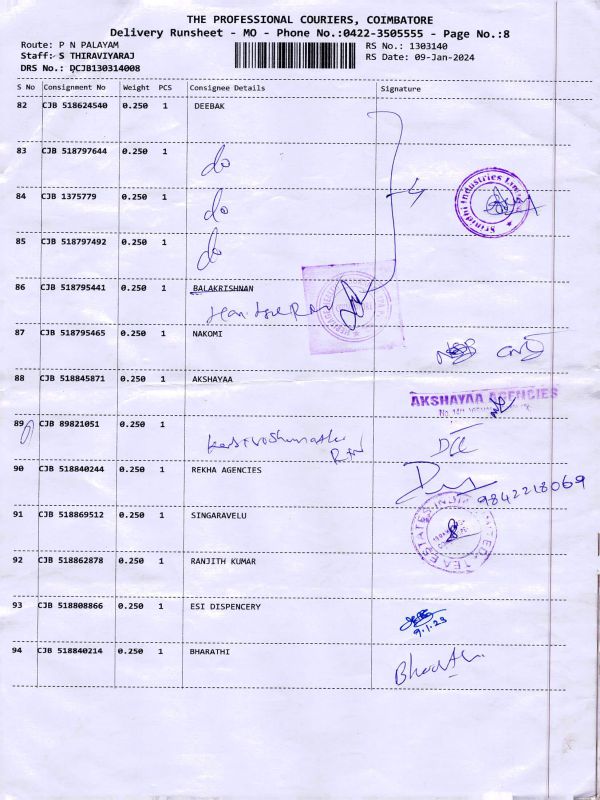 THE PROFESSIONAL COURIERS, COIMBATORE
Delivery Runsheet - MO - Phone No.:0422-3505555 - Page No.:8
Route: P N PALAYAM RS No.: 1303140
Staff: S THIRAVIYARAJ RS Date: 09-Jan-2024
DRS No.: DCJB130314008
S No Consignment No Weight PCS Consignee Details Signature
82 CJB 518624540 0.250 1 DEEBAK
83 CJB 518797644 0.250 1
do
84 CJB 1375779 0.250 1
do
Srinidhi Industries Limited
85 CJB 518797492 0.250 1
do
86 CJB 518795441 0.250 1 BALAKRISHNAN
87 CJB 518795465 0.250 1 NAKOMI
88 CJB 518845871 0.250 1 AKSHAYAA
AKSHAYAA AGENCIES
89 CJB 89821051 0.250 1
90 CJB 518840244 0.250 1 REKHA AGENCIES
9842218069
91 CJB 518869512 0.250 1 SINGARAVELU
92 CJB 518862878 0.250 1 RANJITH KUMAR
93 CJB 518808866 0.250 1 ESI DISPENCERY
9.1.23
94 CJB 518840214 0.250 1 BHARATHI
Bharathi